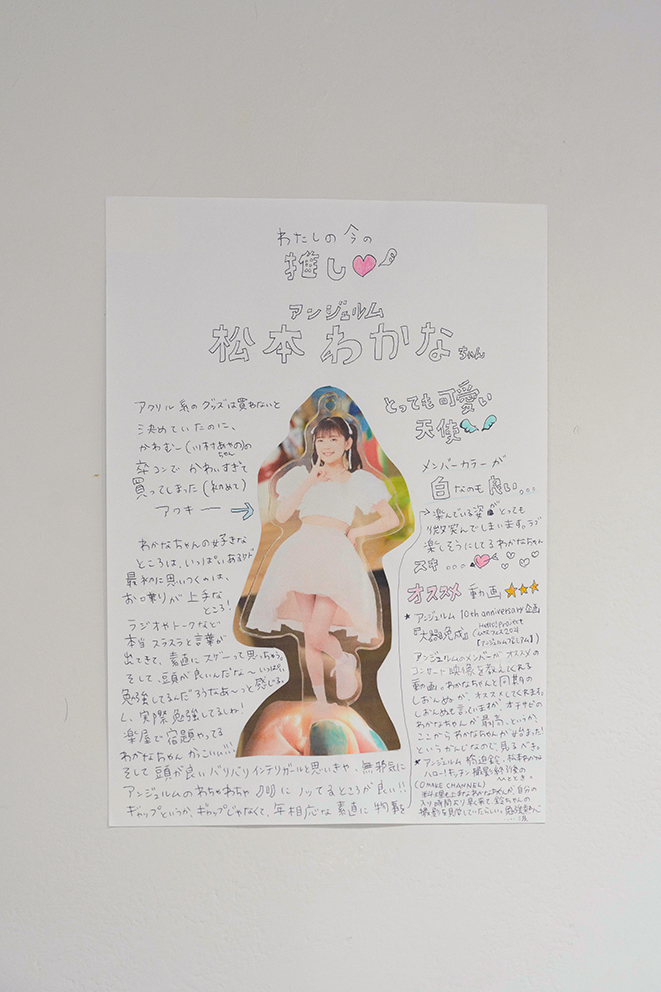 わたしの今の
推し
アンジュルム
松本わかなちゃん
アクリル系のグッズは買わないと
決めていたのに、
かわむー(川村あやのちゃん)の
卒コンで かわいすぎて
買ってしまった(初めて)
アワキー →
わかなちゃんの好きな
ところは、いっぱいあるけど
最初に思いつくのは、
お喋りが上手な
ところ!
ラジオやトークなど
本当スラスラと言葉が
出てきて、素直にスゲーって思っちゃう。
そして、頭が良いんだな〜
勉強してるんだろうなあ〜っと感じる。
し、実際勉強してるしね!
楽屋で宿題やってる
わかなちゃんかっこいい!!!
そして頭が良いバリバリインテリガールと思いきや、無邪気に
アンジュルムのわちゃわちゃノリにノッてるところが良い!!
ギャップというか、ギャップじゃなくて、年相応な素直に物事を
とっても可愛い
天使
メンバーカラーが
白なのも良い。
→楽しんでいる姿がとっても
微笑んでしまいます。ラブ
楽しそうにしてるわかなちゃん
スキ...
オススメ 動画 ★★★
★アンジュルム 10th anniversary 企画
Hello! Project
アンジュルムのメンバーが オススメの
コンサート映像を教えてくれる
動画。わかなちゃんと同期の
しおんぬが、オススメしてくれます。
しおんぬも言っていますが、
わかなちゃんが最高、というか
ここからわかなちゃんが始まった!
というかんじなので、見るべき。
★アンジュルム 橋迫鈴、松本わかな
ハロー!キッチン 撮影終了後の
(OMAKE CHANNEL)